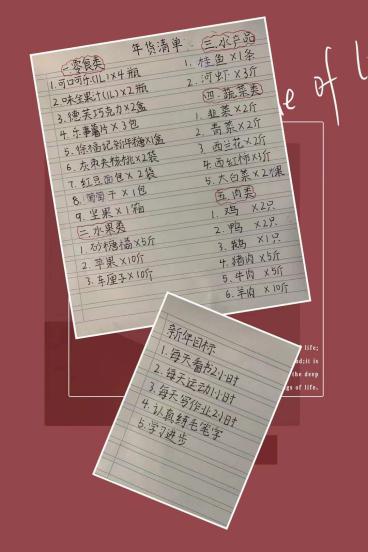 年货清单:
一.零食类
1.可口可乐(1L)×4瓶
2.味全果汁(1L)×2瓶
3.德芙巧克力×2盒
4.乐事薯片×3包
5.徐福记新年糖×1盒
6.灰枣夹核桃×2袋
7.红豆面包×2袋
8.葡萄干×1包
9.坚果×1箱
二.水果类
1.砂糖橘×5斤
2.苹果×10斤
3.车厘子×10斤
三.水产品
1.桂鱼×1条
2.河虾×3斤
四.蔬菜类
1.韭菜×2斤
2.青菜×2斤
3.西兰花×2斤
4.西红柿×1斤
5.大白菜×2棵
五.肉类
1.鸡×2只
2.鸭×2只
3.鹅×1只
4.猪肉×5斤
5.牛肉×5斤
6.羊肉×10斤
e of l
新年目标
1.每天看书2小时
2.每天运动1小时
3.每天写作业2小时
4.认真练毛笔字
5.学习进步
life;
nd;it is
the deep
gs of life.